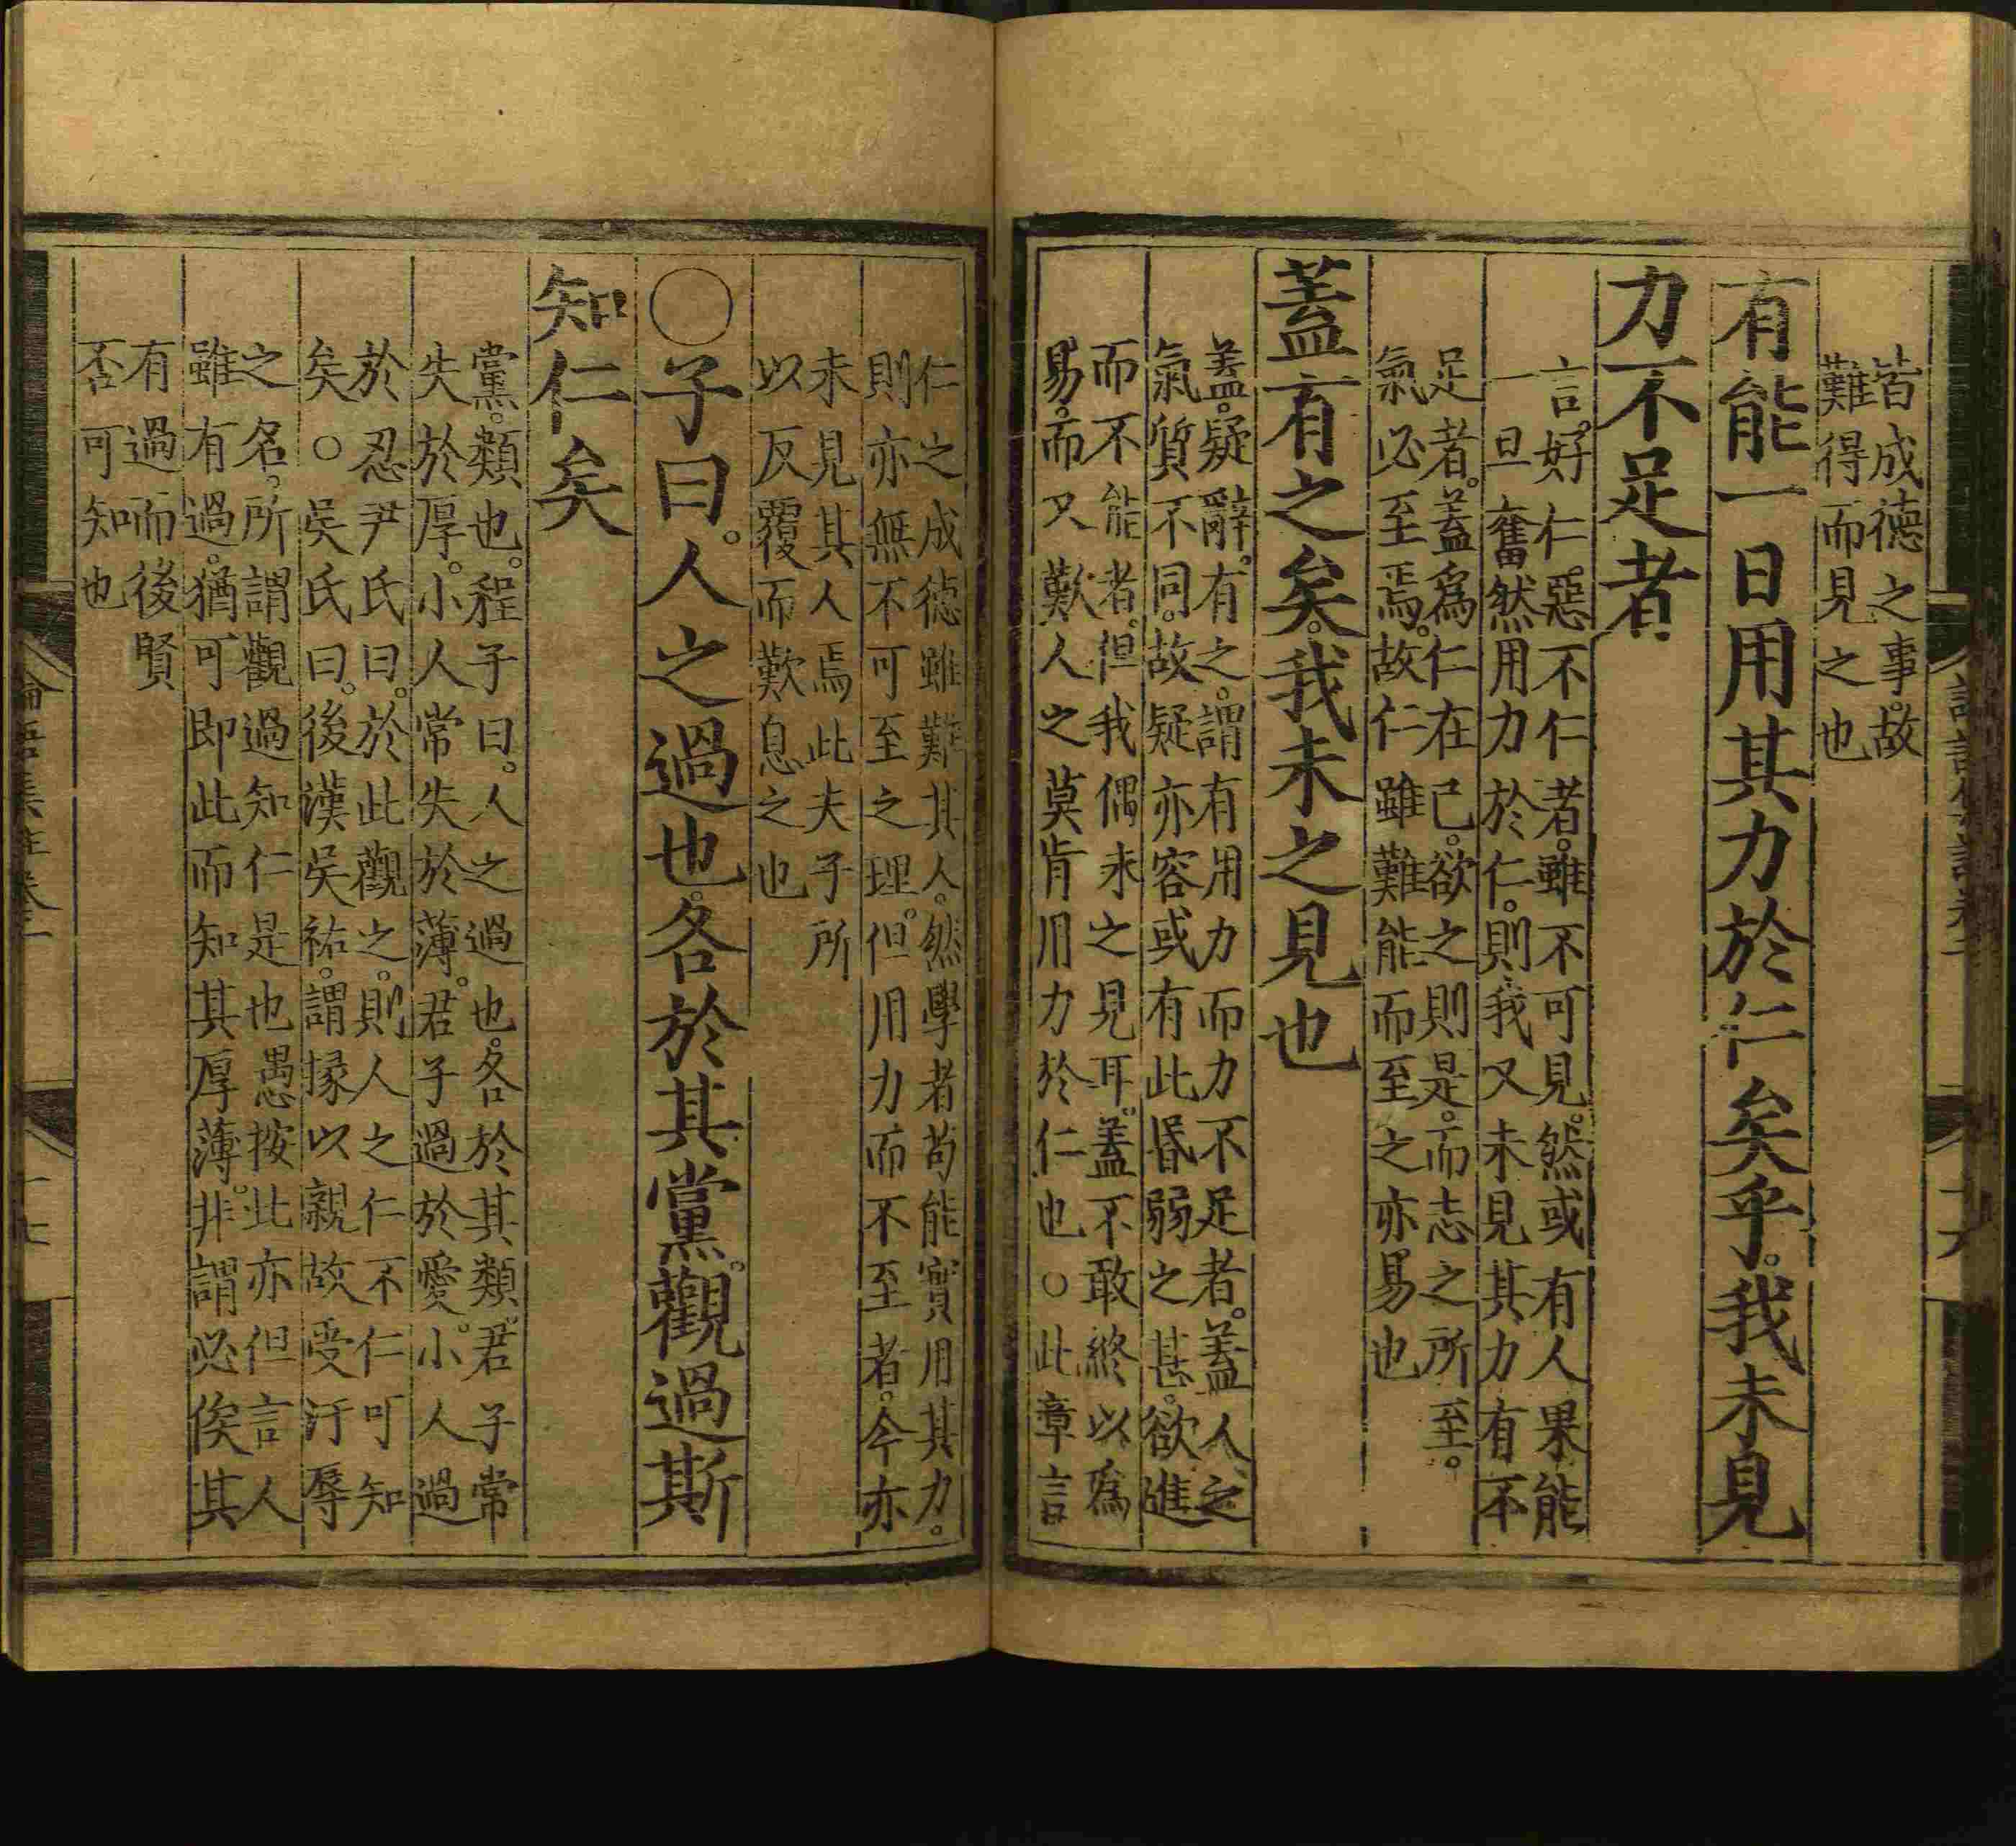 皆成德之事。故
難得而見之也
有能一日用其力於仁矣乎。我未見
力不足者
言。好仁。惡不仁者。雖不可見。然或有人果能
一旦奮然用力於仁。則我又未見其力有不
足者。蓋爲仁在己。欲之則是。而志之所至。
氣必至焉。故仁雖難能而至之亦易也
蓋有之矣。我未之見也
蓋。疑辭。有之。謂有用力而力不足者。蓋人之
氣質不同。故疑亦容或有此昏弱之甚。欲進
而不能者。但我偶未之見耳。蓋不敢終以爲
易。而又歎人之莫肯用力於仁也○此章言
仁之成德雖難其人。然學者苟能實用其力。
則亦無不可至之理。但用力而不至者。今亦
未見其人焉此夫子所
以反覆而歎息之也
○子曰。人之過也。各於其黨。觀過斯
知仁矣
黨。類也。程子曰。人之過也。各於其類。君子常
失於厚。小人常失於薄。君子過於愛。小人過
於忍尹氏曰。於此觀之。則人之仁不仁可知
矣○吳氏曰。後漢吳祐。謂掾以親故受汙辱
之名。所謂觀過知仁是也愚按此亦但言人
雖有過。猶可即此而知其厚薄。非謂必俟其
有過而後賢
否可知也
論語集註卷二
十七